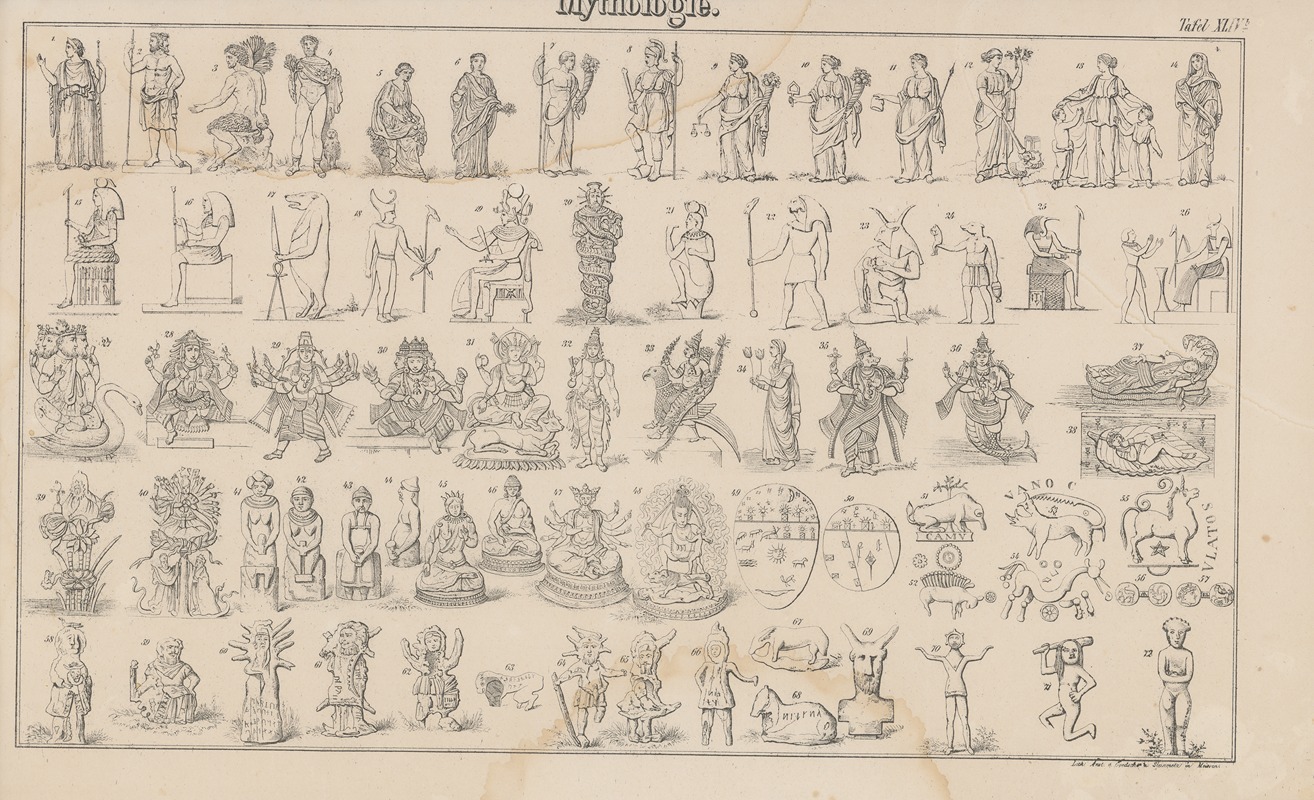 Mythologie.
Tafel XLIV.b
1 2 3 4 5 6 7 8 9 10 11 12 13 14
15 16 17 18 19 20 21 22 23 24 25 26
27 28 29 30 31 32 33 34 35 36 37
38
39 40 41 42 43 44 45 46 47 48 49 50 51 53 55
VANO C
CAMV
52 54 56 57
58 59 60 61 62 63 64 65 66 67 69 70 71 72
68
Lith. Anst. v.